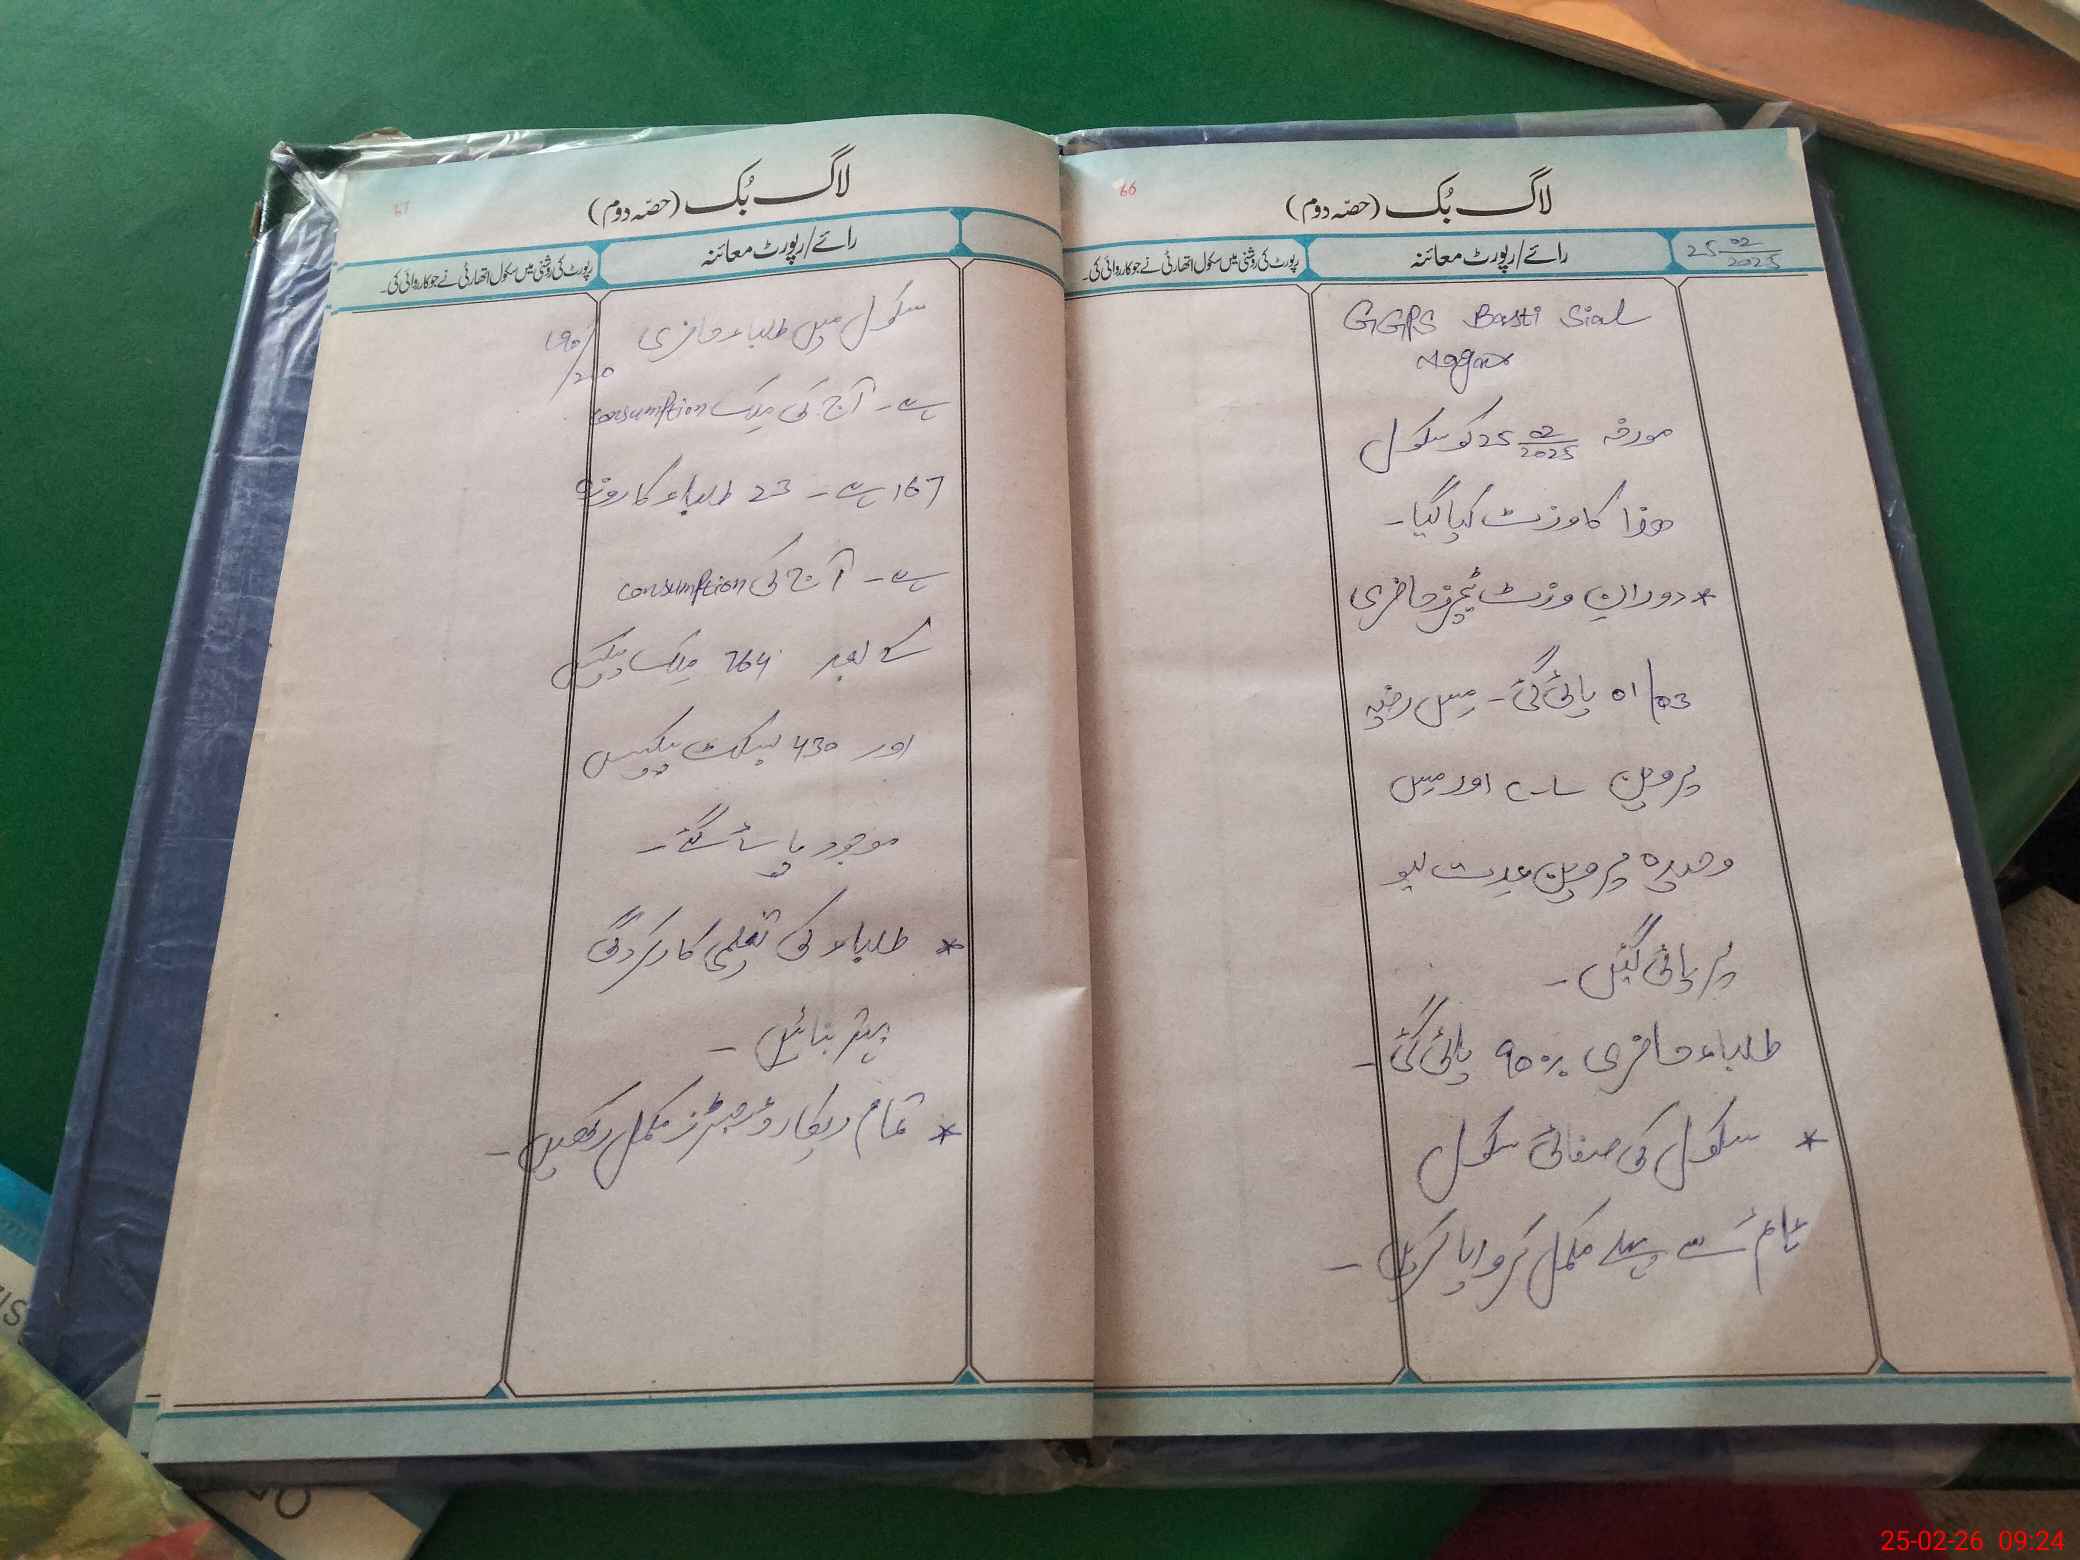 66
لاگ بُک (حصّہ دوم)
25 02/2025
رائے/رپورٹ معائنہ
رپورٹ کی روشنی میں سکول اتھارٹی نے جو کارروائی کی۔
GGPS Basti Sial
Nggar
مورخہ 25 02/2025 کو سکول
ھذا کا وزٹ کیا گیا۔
* دورانِ وزٹ ٹیچرز حاضری
01/03 پائی گئی۔ مِس رضیہ
پروین اور مِس
وحیدہ پروین عدت لیو
پر پائی گئیں۔
طلباء حاضری 90% پائی گئی۔
* سکول کی صفائی سکول
ٹائم سے پہلے مکمل کروایا کریں۔
67
لاگ بُک (حصّہ دوم)
رائے/رپورٹ معائنہ
رپورٹ کی روشنی میں سکول اتھارٹی نے جو کارروائی کی۔
سکول میں طلباء حاضری 190/210
ہے۔ آج کی مِلک consumption
167 ہے۔ 23 طلباء کا روزہ
ہے۔ آج کی consumption
کے بعد 764 مِلک پیکٹس
اور 430 پیکٹس
موجود پائے گئے۔
* طلباء کی تعلیمی کارکردگی
بہتر بنائیں۔
* تمام ریکارڈ رجسٹرز مکمل رکھیں۔
25-02-26 09:24